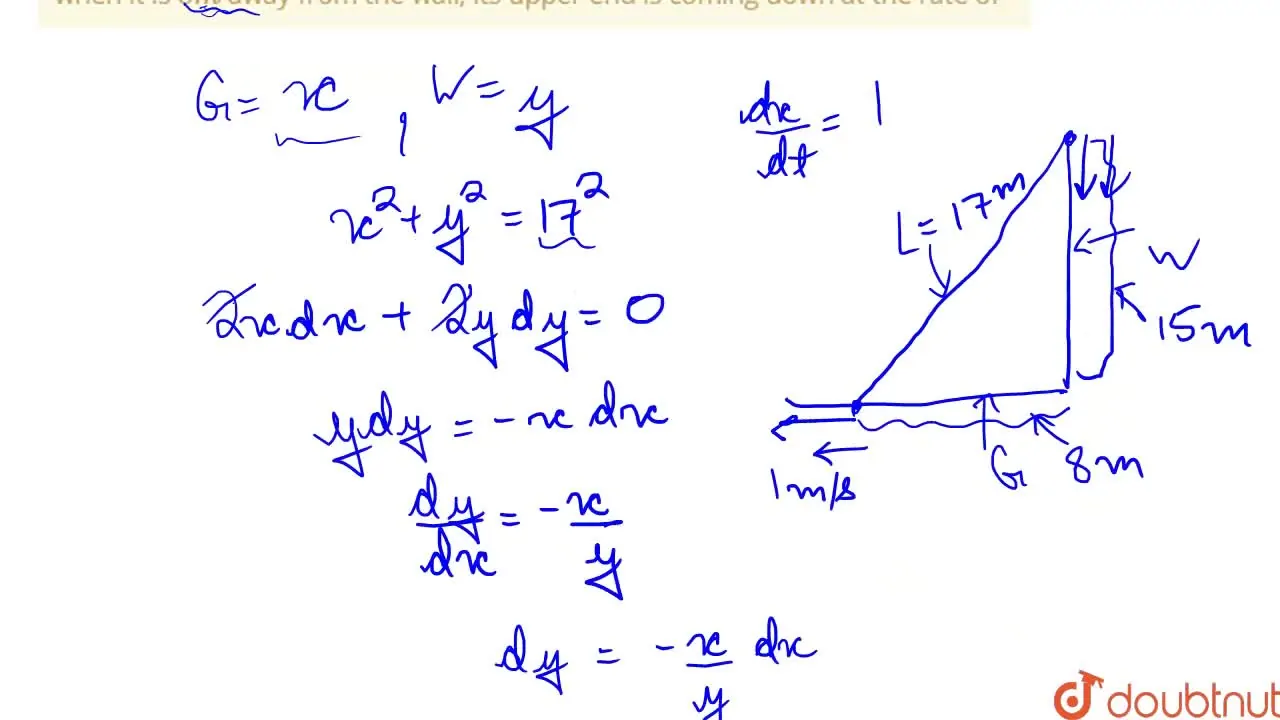 when it is 8m away from the wall, its upper end is coming down at the rate of
G = x , W = y
dx/dt = 1
x² + y² = 17²
L = 17m
W
15m
2x.dx + 2y dy = 0
y dy = - x dx
1m/s
G
8m
dy/dx = - x/y
dy = - x/y dx
doubtnut